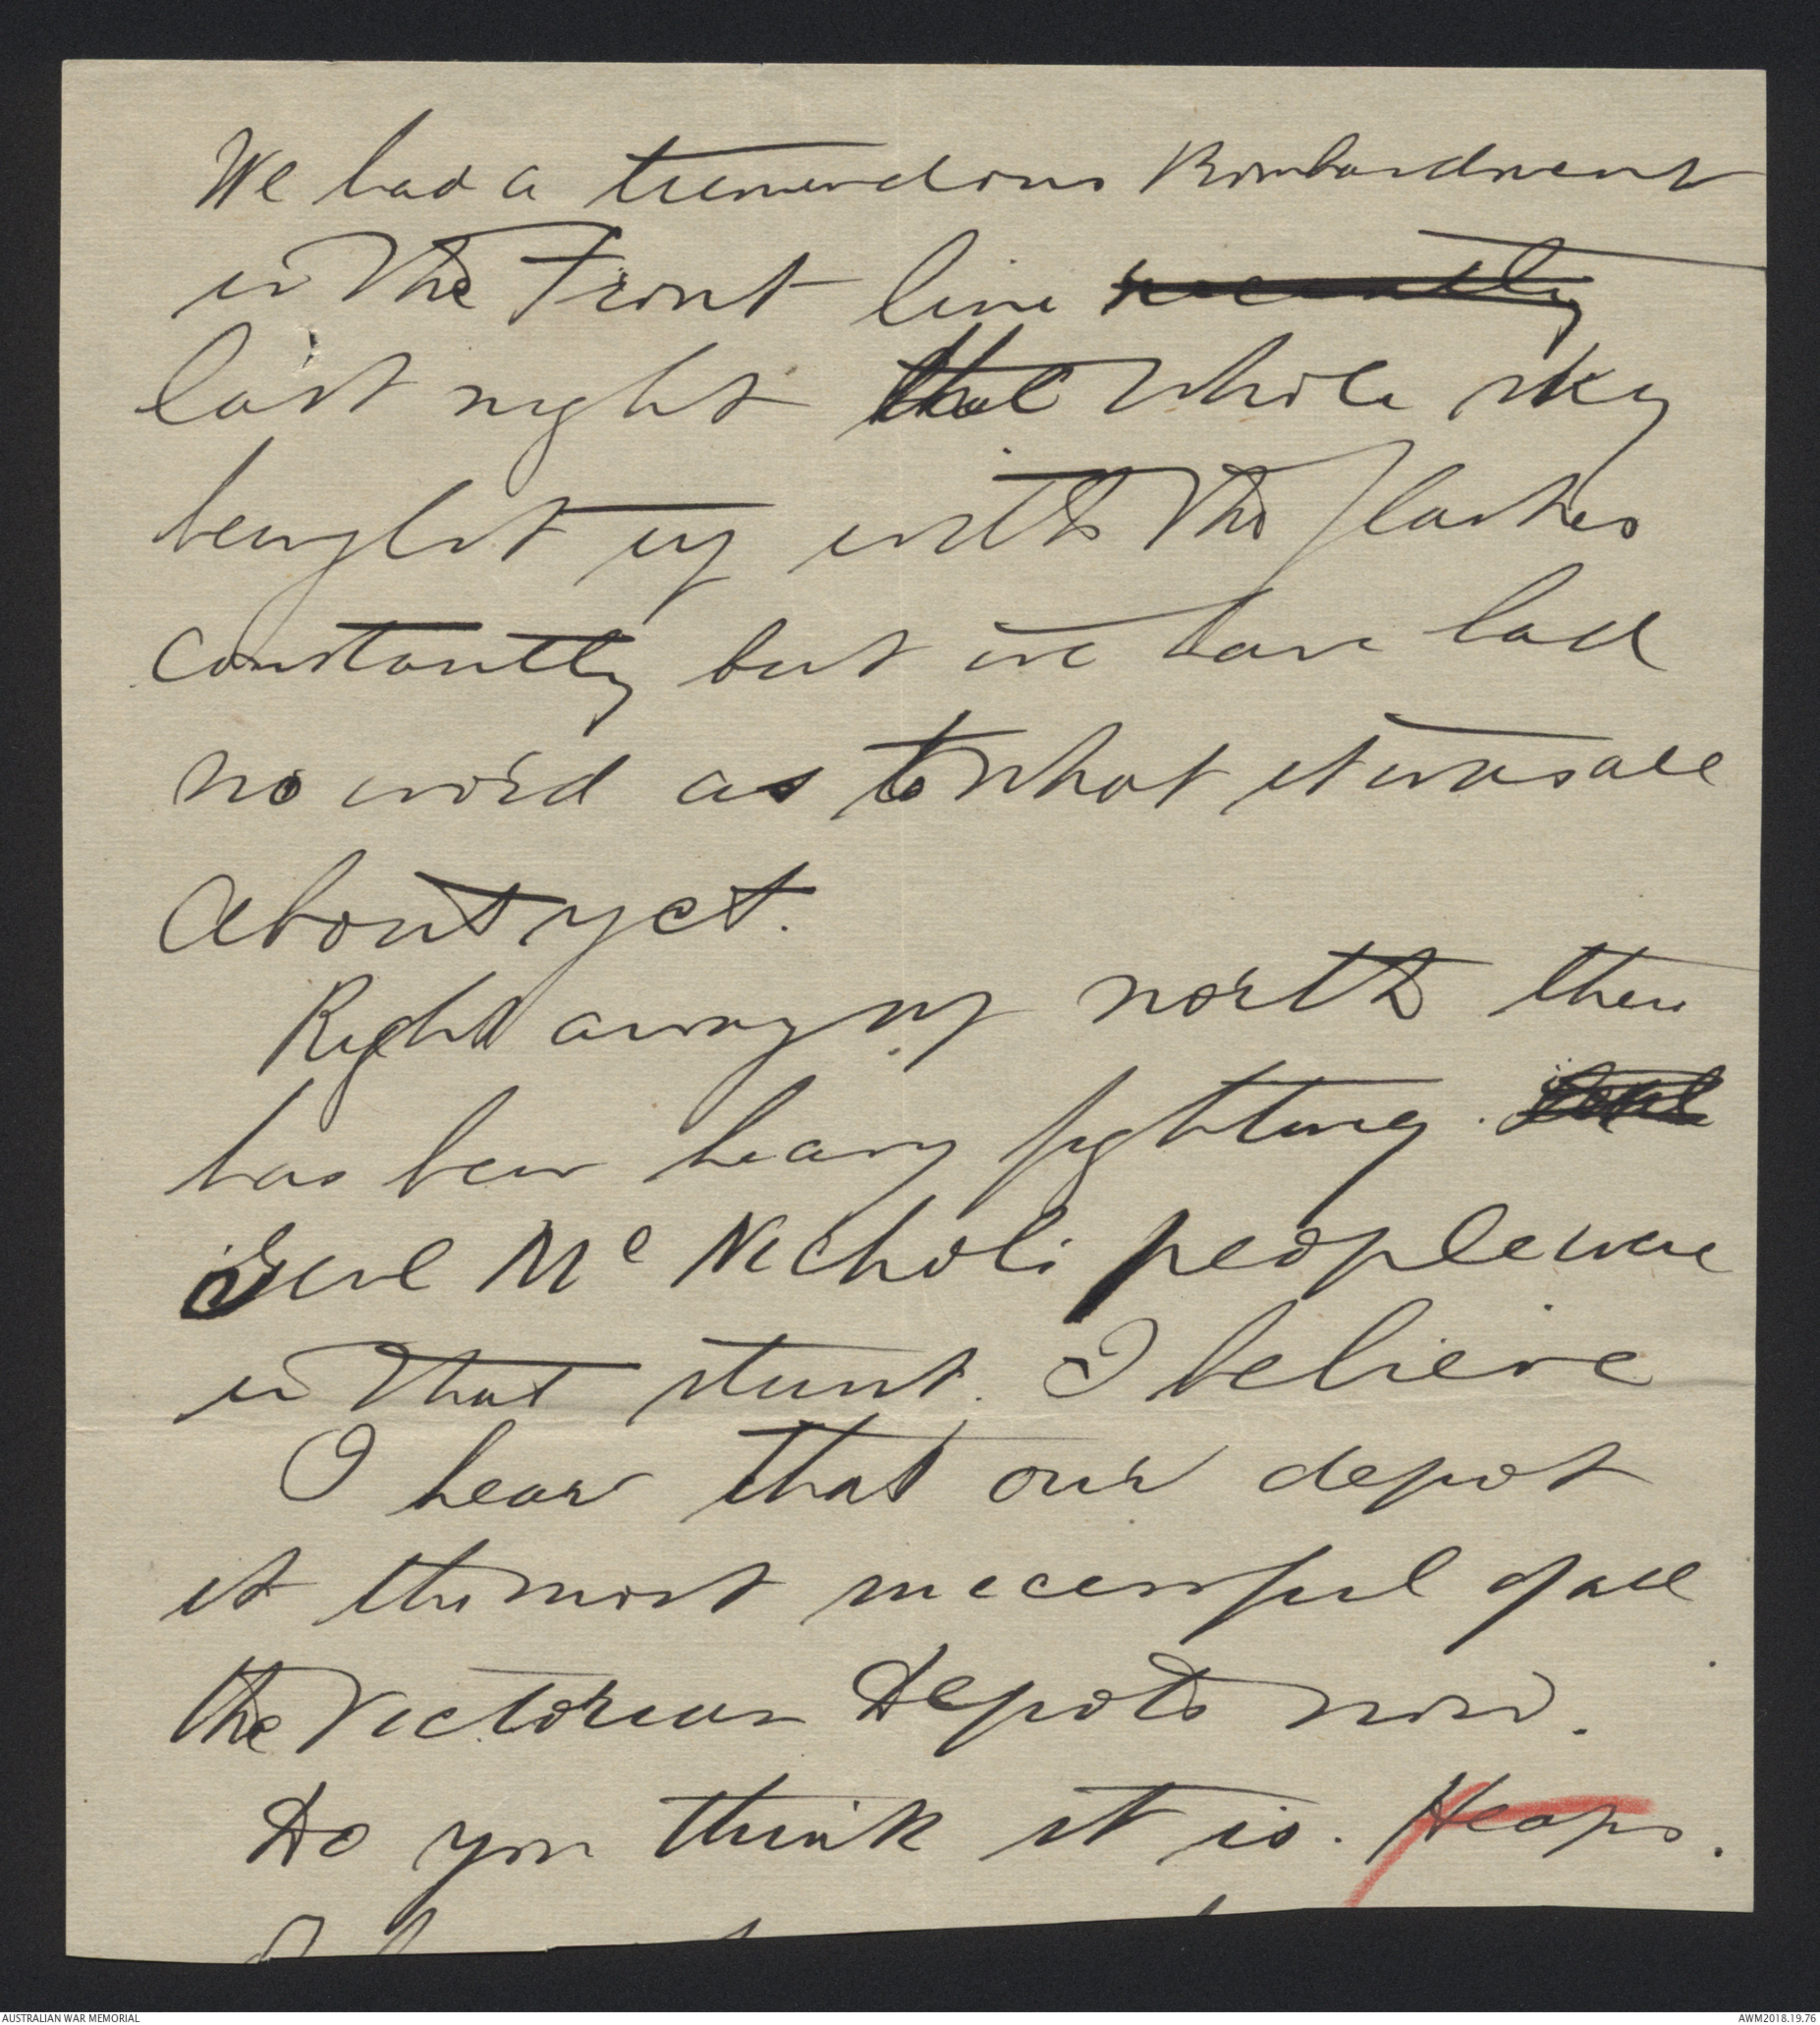 We had a tremendous Bombardment
in the Front line ~~recently~~
last night the whole sky
being lit up with the flashes
constantly but we have had
no word as to what it was all
about yet.
Right away up north there
has been heavy fighting.
Genl McNicholl people were
in that stunt. I believe
I hear that our depot
it the most successful of all
the Victorian Depots now.
Do you think it is. Heaps.
AUSTRALIAN WAR MEMORIAL
AWM2018.19.76